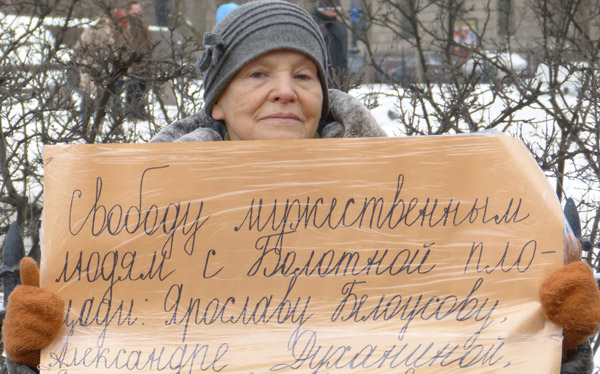 Свободу мужественным
людям с Болотной пло-
щади: Ярославу Белоусову,
Александре Духаниной,